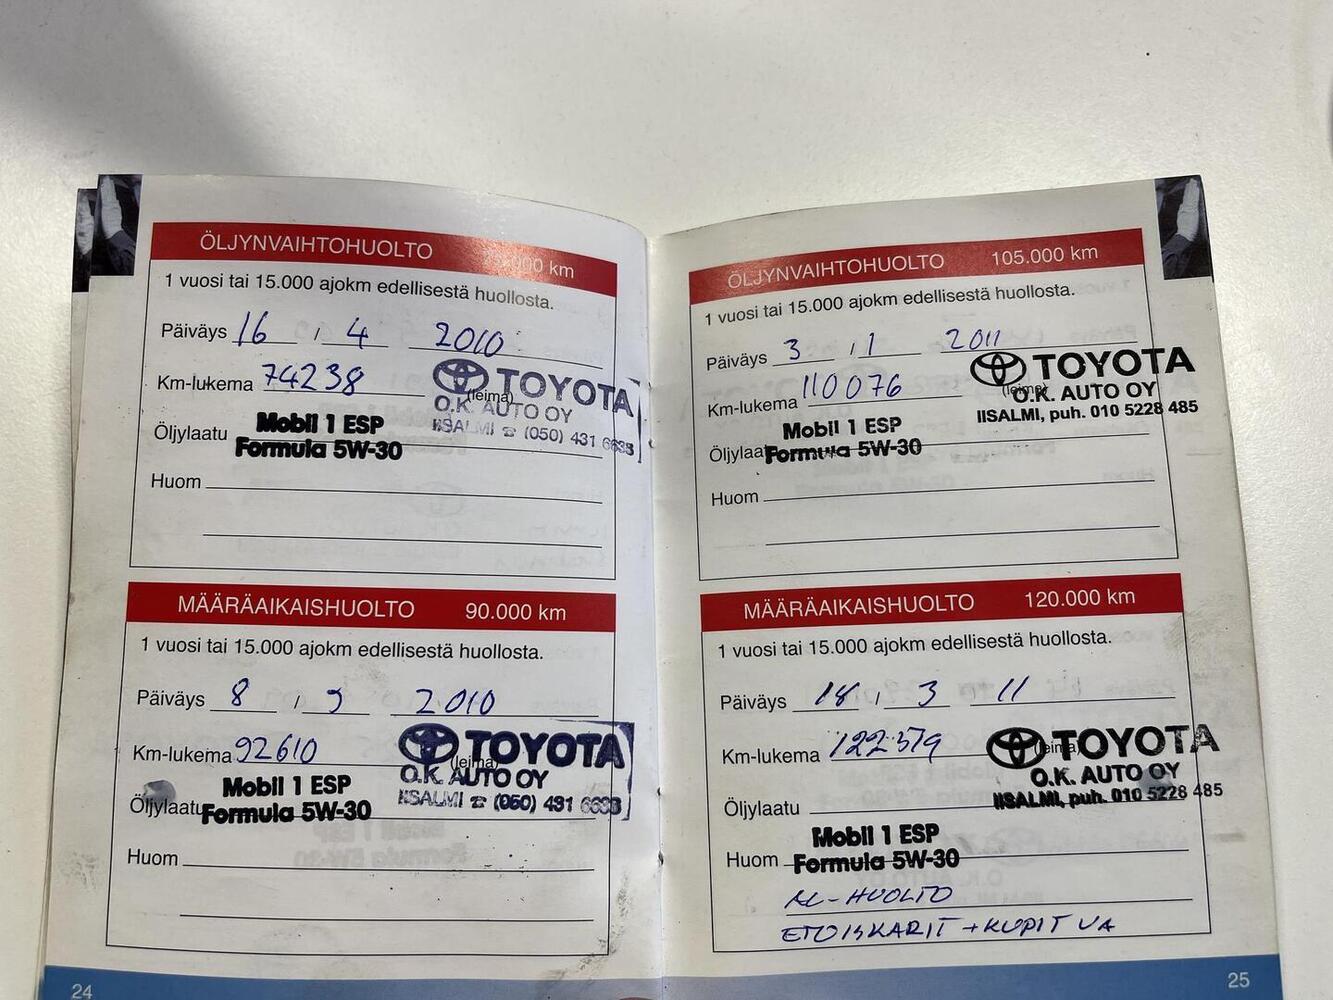 ÖLJYNVAIHTOHUOLTO 75.000 km
1 vuosi tai 15.000 ajokm edellisestä huollosta.
Päiväys 16 / 4 2010
Km-lukema 74238
(leima)
TOYOTA
O.K. AUTO OY
IISALMI ☎ (050) 431 6633
Öljylaatu Mobil 1 ESP
Formula 5W-30
Huom
MÄÄRÄAIKAISHUOLTO 90.000 km
1 vuosi tai 15.000 ajokm edellisestä huollosta.
Päiväys 8 / 9 2010
Km-lukema 92610
(leima)
TOYOTA
O.K. AUTO OY
IISALMI ☎ (050) 431 6633
Öljylaatu Mobil 1 ESP
Formula 5W-30
Huom
24
ÖLJYNVAIHTOHUOLTO 105.000 km
1 vuosi tai 15.000 ajokm edellisestä huollosta.
Päiväys 3 / 1 2011
Km-lukema 110076
(leima)
TOYOTA
O.K. AUTO OY
IISALMI, puh. 010 5228 485
Öljylaatu Mobil 1 ESP
Formula 5W-30
Huom
MÄÄRÄAIKAISHUOLTO 120.000 km
1 vuosi tai 15.000 ajokm edellisestä huollosta.
Päiväys 18 / 3 11
Km-lukema 122579
(leima)
TOYOTA
O.K. AUTO OY
IISALMI, puh. 010 5228 485
Öljylaatu
Mobil 1 ESP
Huom Formula 5W-30
AC-HUOLTO
ETOISKARIT + KUPIT UA
25